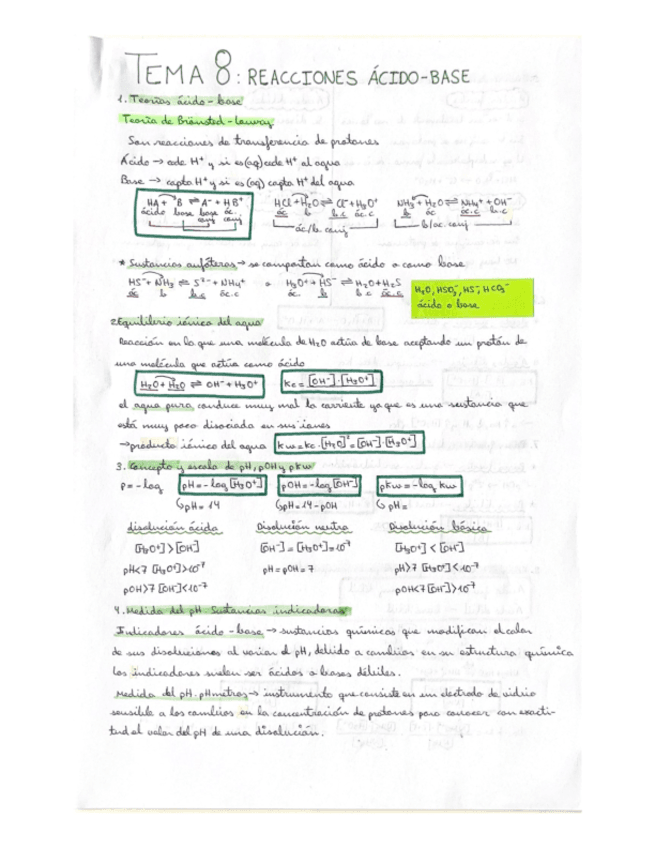 TEMA 8: REACCIONES ÁCIDO-BASE
1. Teorías ácido-base
Teoría de Brönsted-Lowry
Son reacciones de transferencia de protones
Ácido → cede H⁺ y si es (aq) cede H⁺ al agua
Base → capta H⁺ y si es (aq) capta H⁺ del agua
HA + B ⇌ A⁻ + HB⁺ HCl + H₂O ⇌ Cl⁻ + H₃O⁺ NH₃ + H₂O ⇌ NH₄⁺ + OH⁻
ácido base base ác. ác b b.c ác.c b ác ác.c b.c
conj conj ác/b. conj b/ác. conj
* Sustancias anfóteras → se comportan como ácido o como base
HS⁻ + NH₃ ⇌ S²⁻ + NH₄⁺ o H₃O⁺ + HS⁻ ⇌ H₂O + H₂S H₂O, HSO₃⁻, HS⁻, HCO₃⁻
ác b b.c ác.c ác. b b.c ác.c ácido o base
2. Equilibrio iónico del agua
Reacción en la que una molécula de H₂O actúa de base aceptando un protón de
una molécula que actúa como ácido
H₂O + H₂O ⇌ OH⁻ + H₃O⁺ Kc = [OH⁻]·[H₃O⁺]
el agua pura conduce muy mal la corriente ya que es una sustancia que
está muy poco disociada en sus iones
→ producto iónico del agua Kw = Kc·[H₂O]² = [OH⁻]·[H₃O⁺]
3. Concepto y escala de pH, pOH y pKw
p = -log pH = -log [H₃O⁺] pOH = -log [OH⁻] pKw = -log Kw
↳ pH = 14 ↳ pH = 14 - pOH ↳ pH =
disolución ácida Disolución neutra Disolución básica
[H₃O⁺] > [OH⁻] [OH⁻] = [H₃O⁺] = 10⁻⁷ [H₃O⁺] < [OH⁻]
pH < 7 [H₃O⁺] > 10⁻⁷ pH = pOH = 7 pH > 7 [H₃O⁺] < 10⁻⁷
pOH > 7 [OH⁻] < 10⁻⁷ pOH < 7 [OH⁻] > 10⁻⁷
4. Medida del pH. Sustancias indicadoras
Indicadores ácido-base → sustancias químicas que modifican el color
de sus disoluciones al variar el pH, debido a cambios en su estructura química
los indicadores suelen ser ácidos o bases débiles.
Medida del pH. pHmetros → instrumento que consiste en un electrodo de vidrio
sensible a los cambios en la concentración de protones para conocer con exacti-
tud el valor del pH de una disolución.